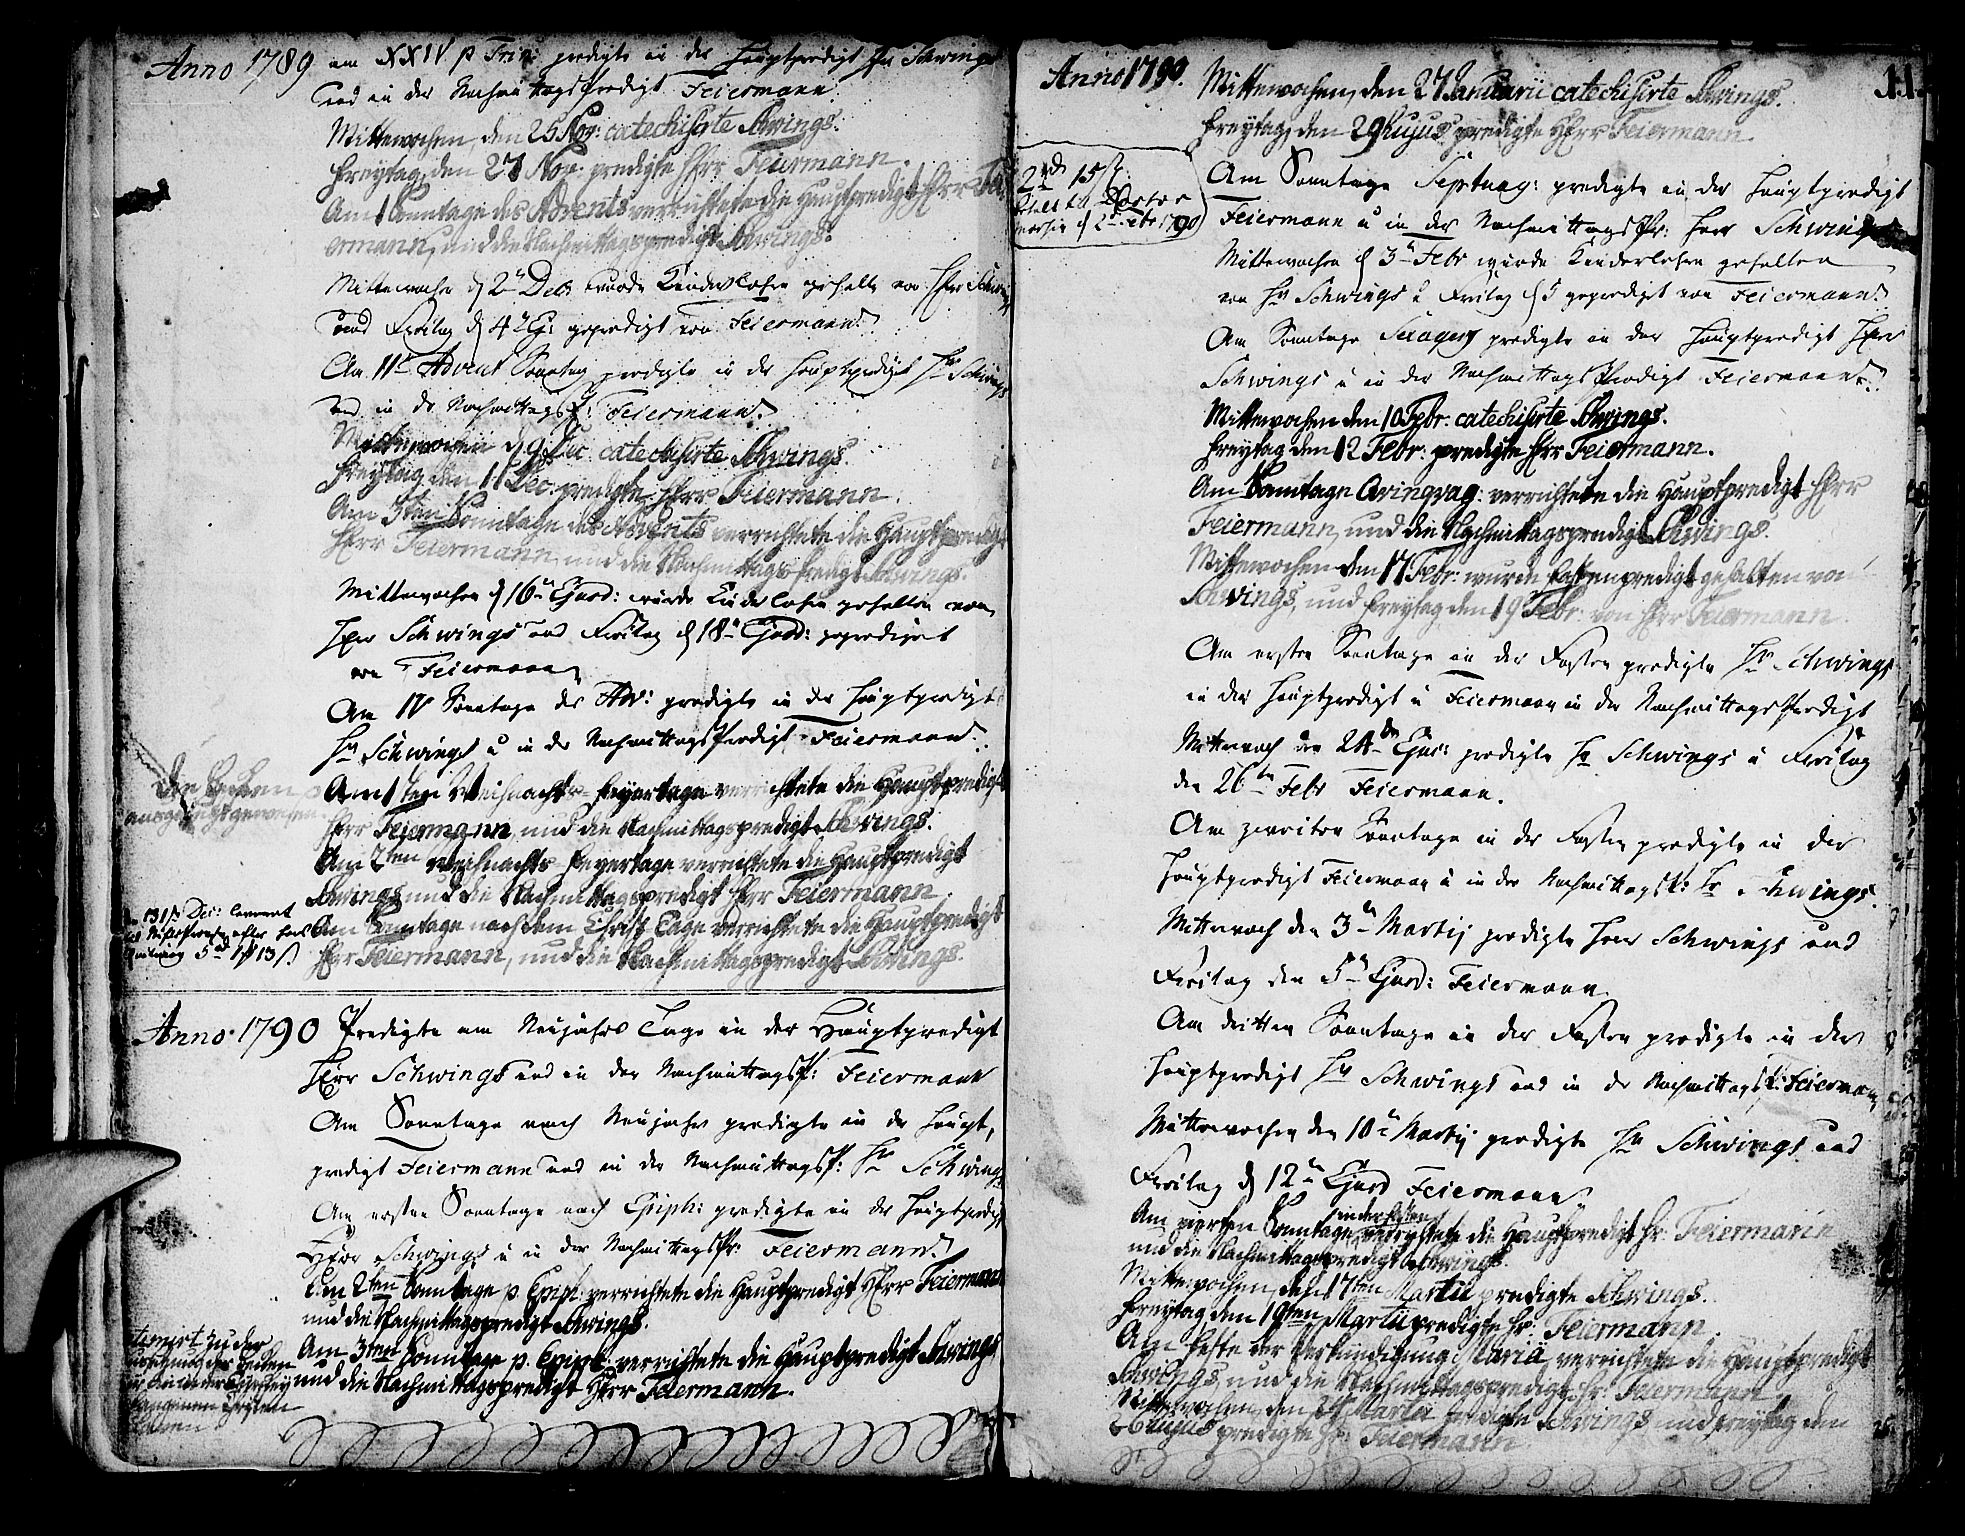 Anno 1789 am XXIV p Trin: predigte in der Hauptpredigt Hr Schwings
und in der NachmittagsPredigt Feiermann.
Mittewochen, den 25 Nov: catechisirte Schwings.
Freytag, den 27 Nov. predigte Herr Feiermann.
Am 1 Sonntage des Advents verrichtete die Hauptpredigt Herr Fei-
ermann, und die Nachmittagspredigt Schwings.
Mittewoche d 2n Dec. wurde Kinderlehre gehalten von Herr Schwings
und Freitag d 4n Ej: gepredigt von Feiermann.
Am IIn Advent Sonntag predigte in der Hauptpredigt Hr Schwings
und in der Nachmittagsp: Feiermann.
Mittewochen d 9 Dec catechisirte Schwings.
Freytag den 11 Dec. predigte Herr Feiermann.
Am 3ten Sonntage des Advents verrichtete die Hauptpredigt
Herr Feiermann, und die Nachmittagspredigt Schwings.
Mittewochen d 16n Ejusd: wurde Kinderlehre gehalten von
Herr Schwings und Freitag d 18n Ejusd: geprediget
von Feiermann
Am IV Sonntage des Adv: predigte in der Hauptpredigt
Hr Schwings u in der NachmittagsPredigt Feiermann.
Am 1ten Weihnachts-Feyertage verrichtete die Hauptpredigt
Herr Feiermann, und die Nachmittagspredigt Schwings.
Am 2ten Weihnachts Feyertage verrichtete die Hauptpredigt
Schwings und die Nachmittagspredigt Herr Feiermann.
Am Sonntage nach dem Christ Tage verrichtete die Hauptpredigt
Herr Feiermann, und die Nachmittagspredigt Schwings.
Anno 1790 Predigte am Neujahrs Tage in der Hauptpredigt
Herr Schwings und in der Nachmittagsp: Feiermann
Am Sonntage nach Neujahr predigte in der Haupt,
predigt Feiermann und in der Nachmittagsp: Hr Schwings
Am ersten Sonntage nach Epiph: predigte in der Hauptpredigt
Herr Schwings u in der Nachmittagspr: Feiermann.
Am 2ten Sonntage p. Epiph: verrichtete die Hauptpredigt Herr Feiermann
und die Nachmittagspredigt Schwings.
Am 3ten Sonntage p. Epiph: verrichtete die Hauptpredigt Schwings
und die Nachmittagspredigt Herr Feiermann.
Anno 1790. 11.
Mittewochen, den 27 Januarii catechisirte Schwings.
Freytag, den 29 hujus predigte Herr Feiermann.
Am Sonntage Septuag: predigte in der Hauptpredigt
Feiermann u in der Nachmittagspr: Herr Schwings
Mittewochen d 3n Febr wurde Kinderlehre gehalten
von Hr Schwings u Freitag d 5 gepredigt von Feiermann.
Am Sonntage Sexages predigte in der Hauptpredigt Herr
Schwings u in der NachmittagsPredigt Feiermann.
Mittewochen den 10 Febr. catechisirte Schwings.
Freytag den 12 Febr: predigte Herr Feiermann.
Am Sonntage Qvinqvag: verrichtete die Hauptpredigt Herr
Feiermann, und die Nachmittagspredigt Schwings.
Mittewochen den 17 Febr: wurde Fastenpredigt gehalten von
Schwings, und Freytag den 19 Febr: von Herr Feiermann.
Am ersten Sonntage in der Fasten predigte Hr Schwings
in der Hauptpredigt u Feiermann in der NachmittagsPredigt
Mittwoch den 24ten Ejus: predigte Hr Schwings u Freitag
den 26ten Febr Feiermann.
Am zweiten Sonntage in der Fasten predigte in der
Hauptpredigt Feiermann u in der Nachmittagsp: Hr Schwings.
Mittwoch den 3n Martij predigte Herr Schwings und
Freitag den 5n Ejusd: Feiermann.
Am dritten Sonntage in der Fasten predigte in der
Hauptpredigt Hr Schwings und in der Nachmittagsp: Feiermann
Mittwochen den 10n Martij predigte Hr Schwings und
Freitag d 12n Ejusd Feiermann
Am vierten Sonntage in der Fasten verrichtete die Hauptpredigt Hr. Feiermann
und die Nachmittagspredigt Schwings.
Mittewochen, den 17ten Martii predigte Schwings.
Freytag den 19ten Martii predigte Hr. Feiermann.
Am Feste der Verkündigung Mariä, verrichtete die Hauptpredigt
Schwings, und die Nachmittagspredigt Hr. Feiermann
Mittewochen, den 24 Martii predigte Schwings und Freytag den
26 hujus predigte Hr. Feiermann.